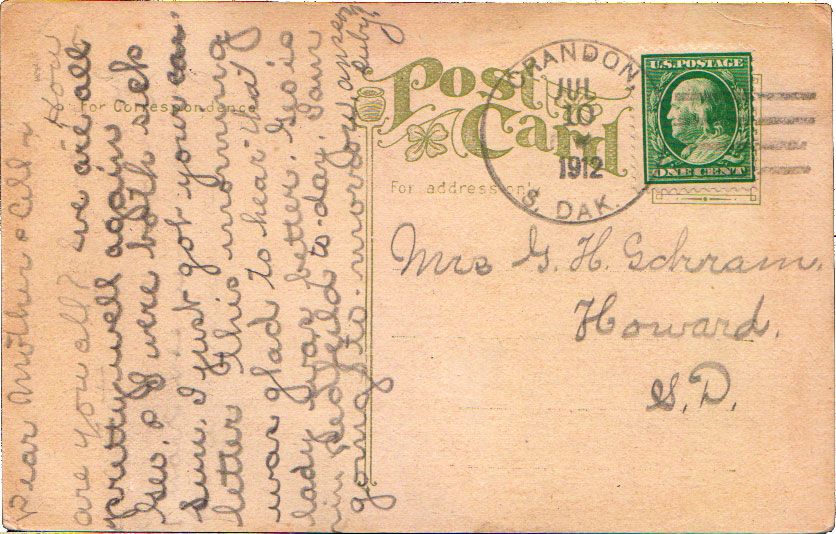 Post
Card
For Correspondence
For address only
CRANDON,
JUL
10
1912
S. DAK.
U.S. POSTAGE
ONE CENT
Mrs G. H. Schram.
Howard.
S.D.
Dear Mother & All ~ How
are you all? we are all
pretty well again
Geo. & I were both sick
Sun. I just got your
letter this morning
was glad to hear the
lady was better. Geo is
in Redfeild to-day. I am
going to-morrow
Ruby.